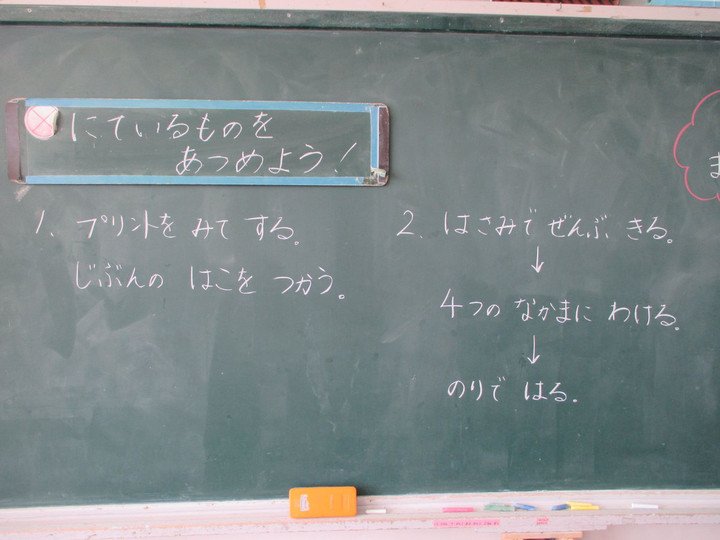 にているものを
あつめよう!
1. プリントを みて する。
じぶんの はこを つかう。
2. はさみで ぜんぶ きる。
↓
4つの なかまに わける。
↓
のりで はる。
ま